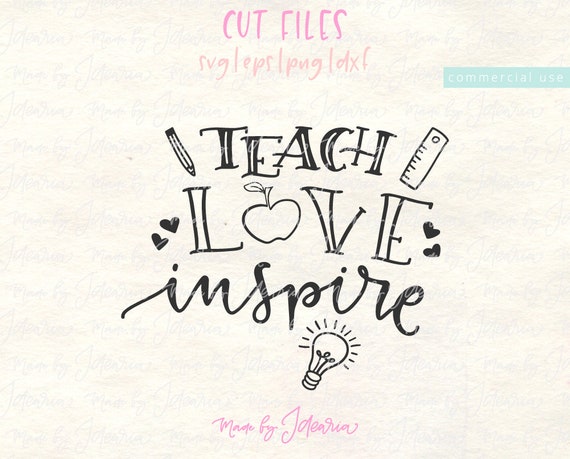 CUT FILES
svg|eps|png|dxf
commercial use
TEACH
LOVE
inspire
Made by Jdearia